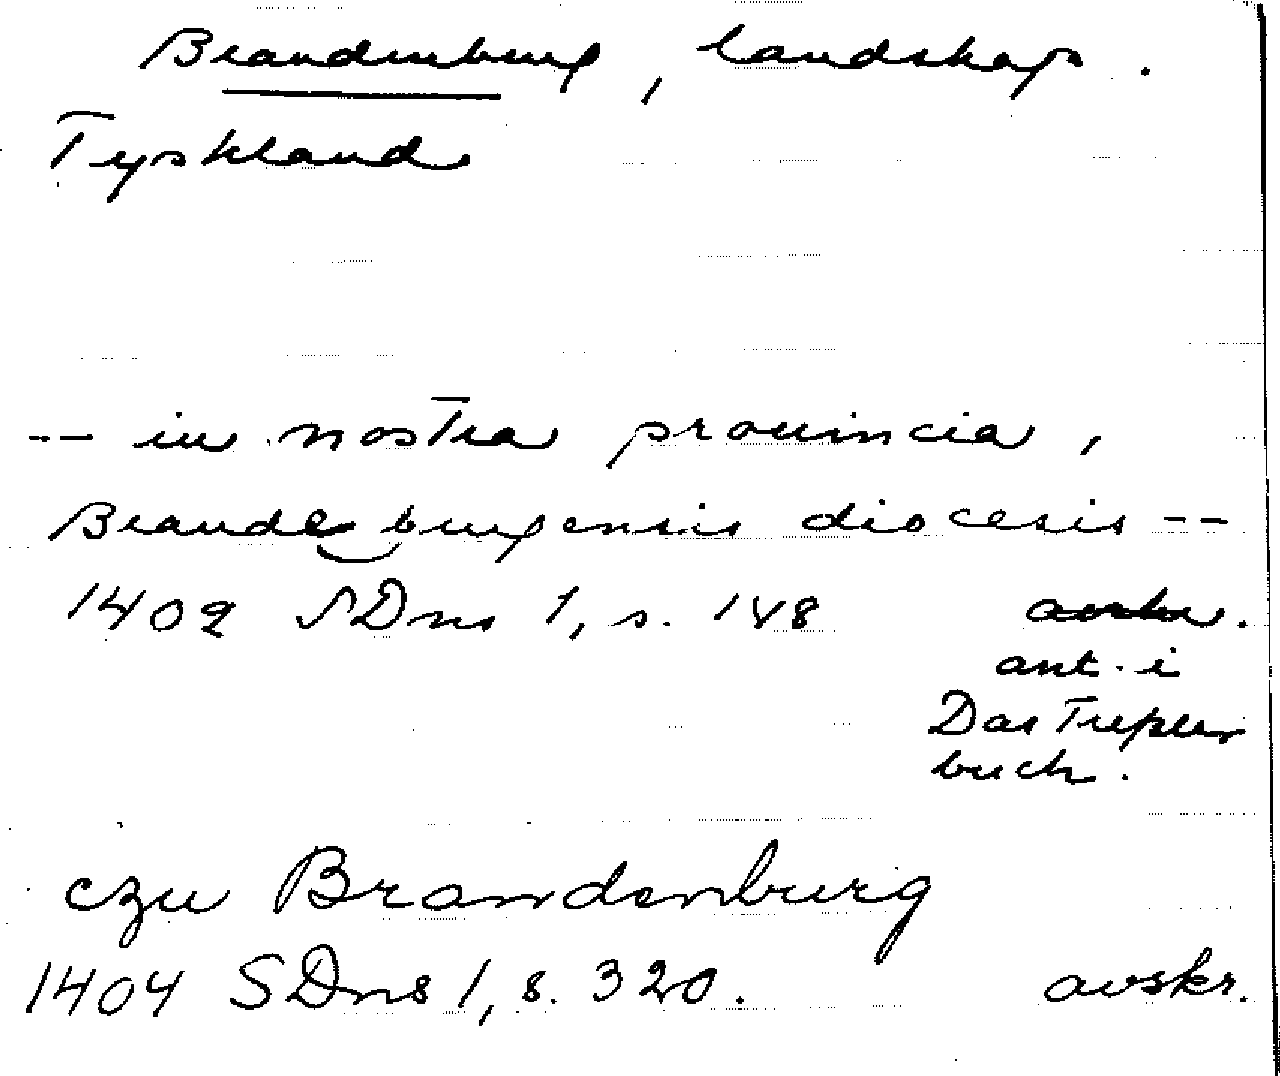 Brandenburg, landskap.
Tyskland
-- in nostra prouincia,
Brandeburgensis diocesis --
1402 SDns 1, s. 148
ant. i
Das Tresslerbuch.
czu Brandenburg
1404 SDns 1, s. 320. avskr.